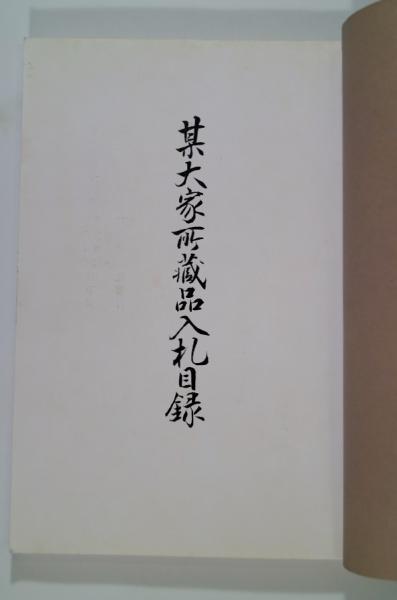 某大家所藏品入札目録